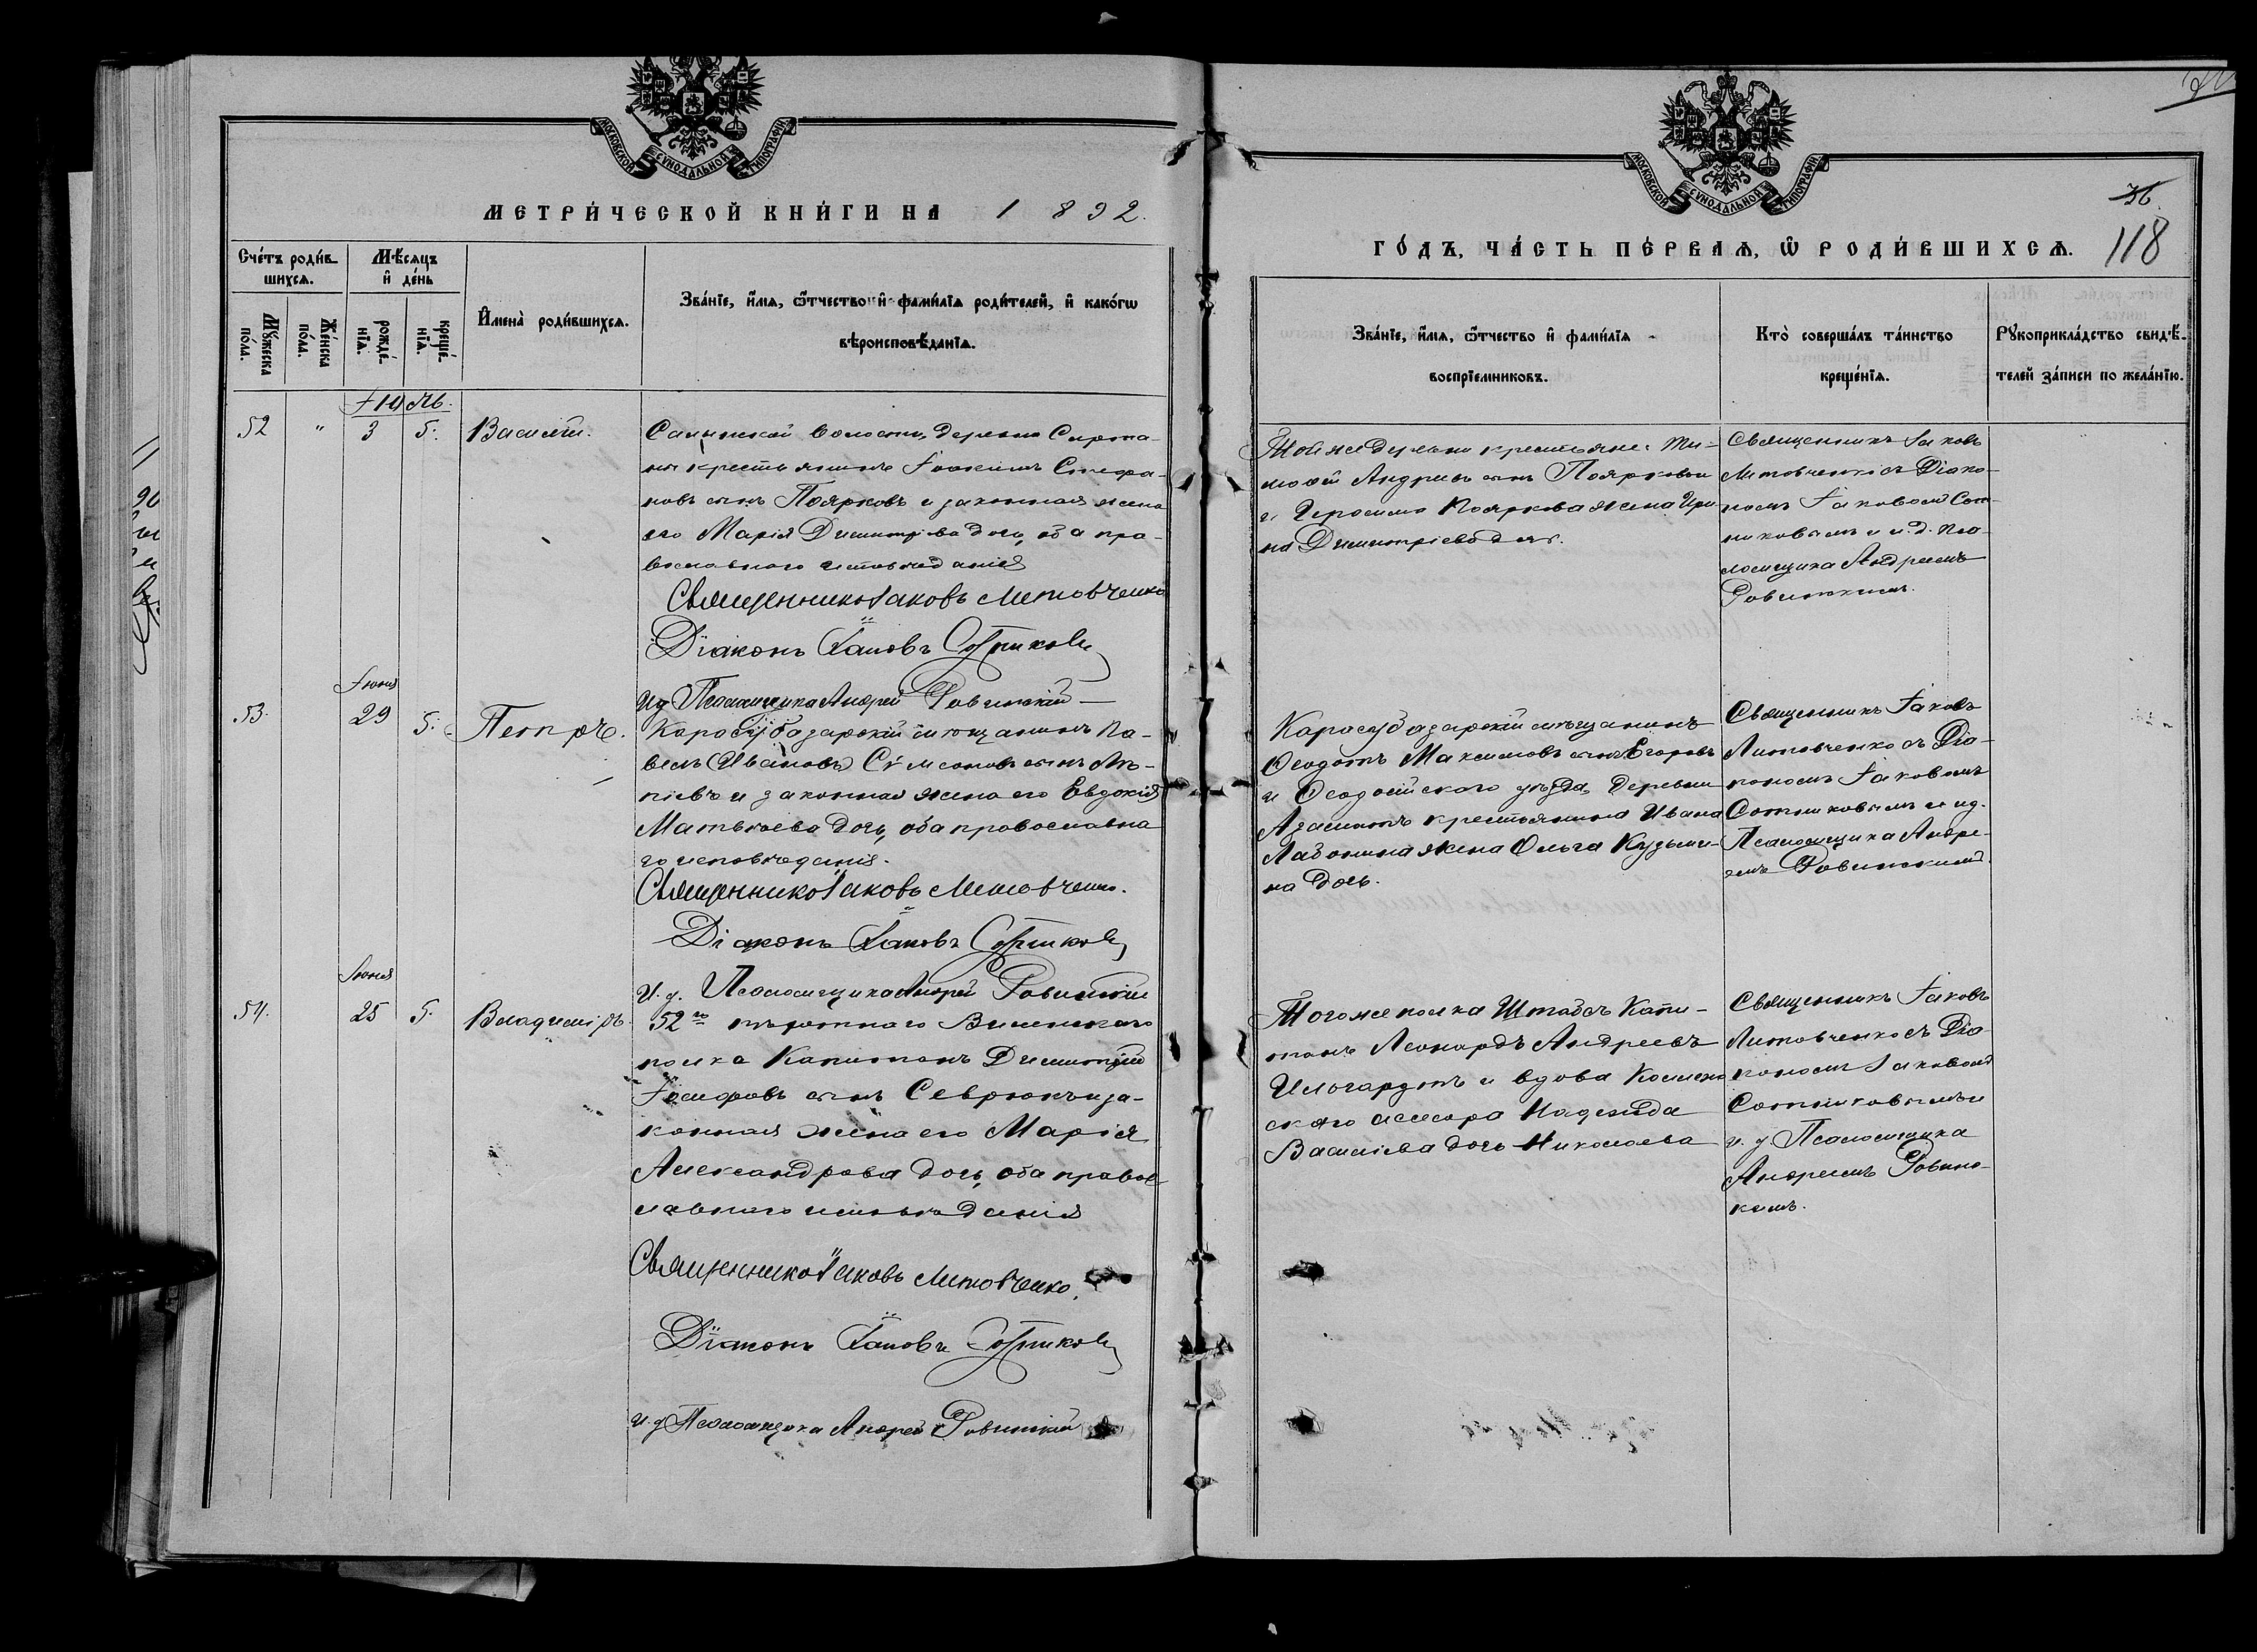 МОСКОВСКОЙ СѴНОДАЛЬНОЙ ТИПОГРАФІИ
МЕТРИ́ЧЕСКОЙ КНИ́ГИ НА 1892.
Сче́тъ роди́в-
шихсѧ.
Мѣ́сѧцъ
и҆ де́нь
Мꙋ́жеска
по́ла.
Же́нска
по́ла.
рожде́-
нїѧ.
креще́-
нїѧ.
И҆мена̀ роди́вшихсѧ.
Зва́нїе, и҆́мѧ, ѻ҆́тчество и҆ фами́лїѧ роди́телей, и҆ како́гѡ
вѣроисповѣ́данїѧ.
Іюль.
52 " 3 5. Василій.
волости, деревни
крестьянинъ Іоакимъ Стефа-
новъ сынъ Поярковъ и законная жена
его Марія Димитріева дочь, оба пра-
вославного исповѣданія
Священникъ Іаковъ Литовченко
Діаконъ Іаковъ Сотниковъ
Ид Псаломщика Андрей Ровинскій
Іюня
53. 29 5. Петръ.
Карасубазарскій мѣщанинъ Па-
велъ (Ивановъ) Сѵмеоновъ сынъ
и законная жена его Евдокія
Матвѣева дочь, оба православна
го исповѣданія.
Священникъ Іаковъ Литовченко.
Діаконъ Іаковъ Сотниковъ
И. д. Псаломщика Андрей Ровинскій
Іюня
54. 25 5. Владиміръ.
52го пѣхотнаго Виленскаго
полка Капитанъ Димитрій
Іосифовъ сынъ Севрюкъ и за-
конная жена его Марія
Александрова дочь, оба правос-
лавнаго исповѣданія
Священникъ Іаковъ Литовченко.
Діаконъ Іаковъ Сотниковъ
и. д Псаломщика Андрей Ровинскій
МОСКОВСКОЙ СѴНОДАЛЬНОЙ ТИПОГРАФІИ
36
118
ГО́ДЪ, ЧА́СТЬ ПЕ́РВАѦ, Ѡ҆ РОДИ́ВШИХСѦ.
Зва́нїе, и҆́мѧ, ѻ҆́тчество и҆ фами́лїѧ
воспрїе́мниковъ.
Кто̀ соверша́лъ та́инство
креще́нїѧ.
Рꙋкоприкла́дство свидѣ́-
телей за́писи по жела́нїю.
Той же деревни крестьяне: Ти-
мофей Андреевъ сынъ Поярковъ
и Герасима Пояркова жена Ири
на Димитріева дочь.
Священникъ Іаковъ
Литовченко съ Діако-
номъ Іаковомъ Сот-
никовымъ и и. д. пса-
ломщика Андреемъ
Ровинскимъ.
Карасубазарскій мѣщанинъ
Ѳеодотъ Максимовъ сынъ Егоровъ
и Ѳеодосійскаго уѣзда, деревни
крестьянина Ивана
жена Ольга Кузьми-
на дочь.
Священникъ Іаковъ
Литовченко съ Діа-
кономъ Іаковомъ
Сотниковымъ и ид.
Псаломщика Андре-
емъ Ровинскимъ.
Того же полка Штабсъ Капи-
танъ Леонардъ Андреевъ
и вдова Коллеж
скаго ассесора Надежда
Василіева дочь Николаева
Священникъ Іаковъ
Литовченко съ Діа-
кономъ Іаковомъ
Сотниковымъ и
и. д Псаломщика
Андреемъ Ровинс-
кимъ.